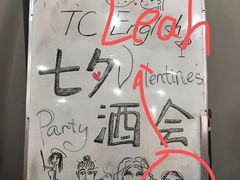 Leah
TC English
七夕 Valentines
Party 酒会